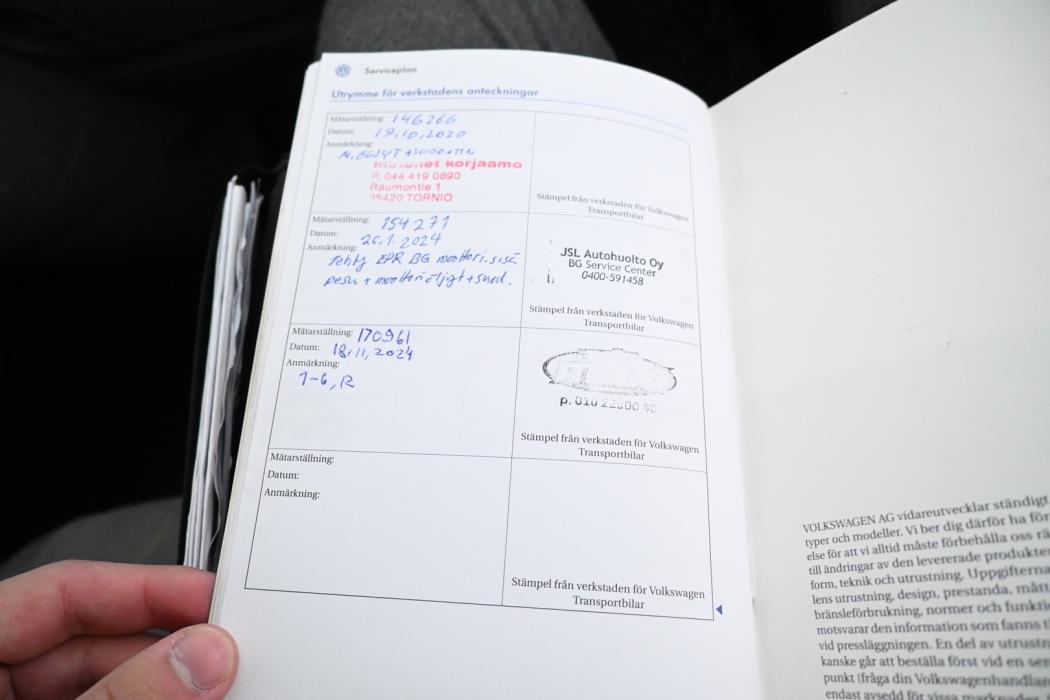 Serviceplan
Utrymme för verkstadens anteckningar
Mätarställning: 146266
Datum: 19.10.2020
Anmärkning:
korjaamo
P. 044 419 0890
Raumontie 1
95420 TORNIO
Stämpel från verkstaden för Volkswagen
Transportbilar
Mätarställning: 154271
Datum: 26.1.2024
Anmärkning:
Tehty EPR BG moottori.sisä
pesu + moottoriöljyt + suod.
JSL Autohuolto Oy
BG Service Center
0400-591458
Stämpel från verkstaden för Volkswagen
Transportbilar
Mätarställning: 170961
Datum: 18.11.2024
Anmärkning:
1-6, R
p. 010
Stämpel från verkstaden för Volkswagen
Transportbilar
Mätarställning:
Datum:
Anmärkning:
Stämpel från verkstaden för Volkswagen
Transportbilar
VOLKSWAGEN AG vidareutvecklar ständigt
typer och modeller. Vi ber dig därför ha för
else för att vi alltid måste förbehålla oss rä
till ändringar av den levererade produkte
form, teknik och utrustning. Uppgifterna
lens utrustning, design, prestanda, mått
bränsleförbrukning, normer och funktio
motsvarar den information som fanns t
vid pressläggningen. En del av utrustn
kanske går att beställa först vid en sen
punkt (fråga din Volkswagenhandlar
endast avsedd för vissa